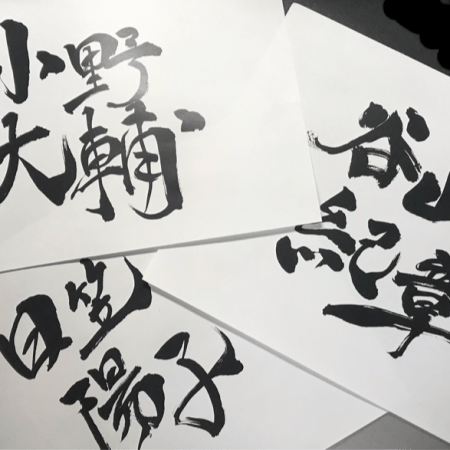 小野
大輔
谷山
紀章
日笠
陽子